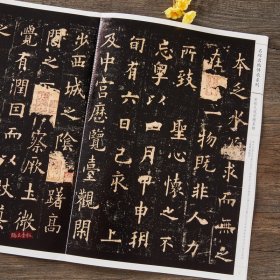 本乏水源求而無之
在乎一物既非人力
所致聖心懷之不
忘粵以四月甲申朔
旬有六日己亥上
及中宮歷覽臺觀閑
步西城之陰躊躇高
閣之察厥土微
覺有潤因而以